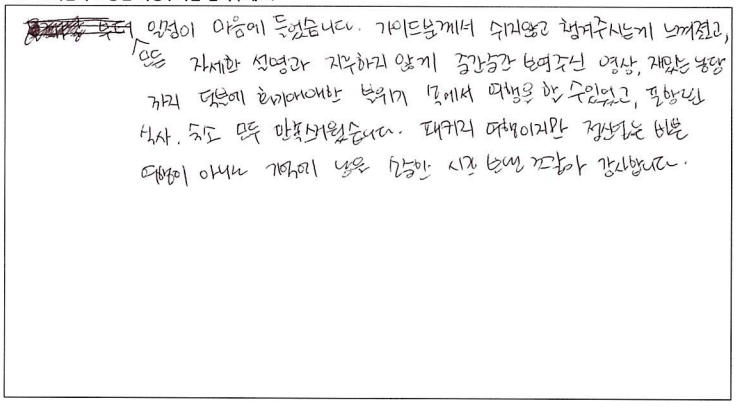 부터 일정이 마음에 들었습니다. 가이드분께서 쉬지않고 챙겨주시는게 느껴졌고,
모든 자세한 설명과 지루하지 않게 중간중간 보여주신 영상, 재밌는 농담
까지 덕분에 화기애애한 분위기 속에서 여행을 할 수있었고, 포함된
식사, 숙소 모두 만족스러웠습니다. 패키지 여행이지만 정신없는 바쁜
여행이 아니나 기억에 남을 소중한 시간 보낸 것같아 감사합니다.